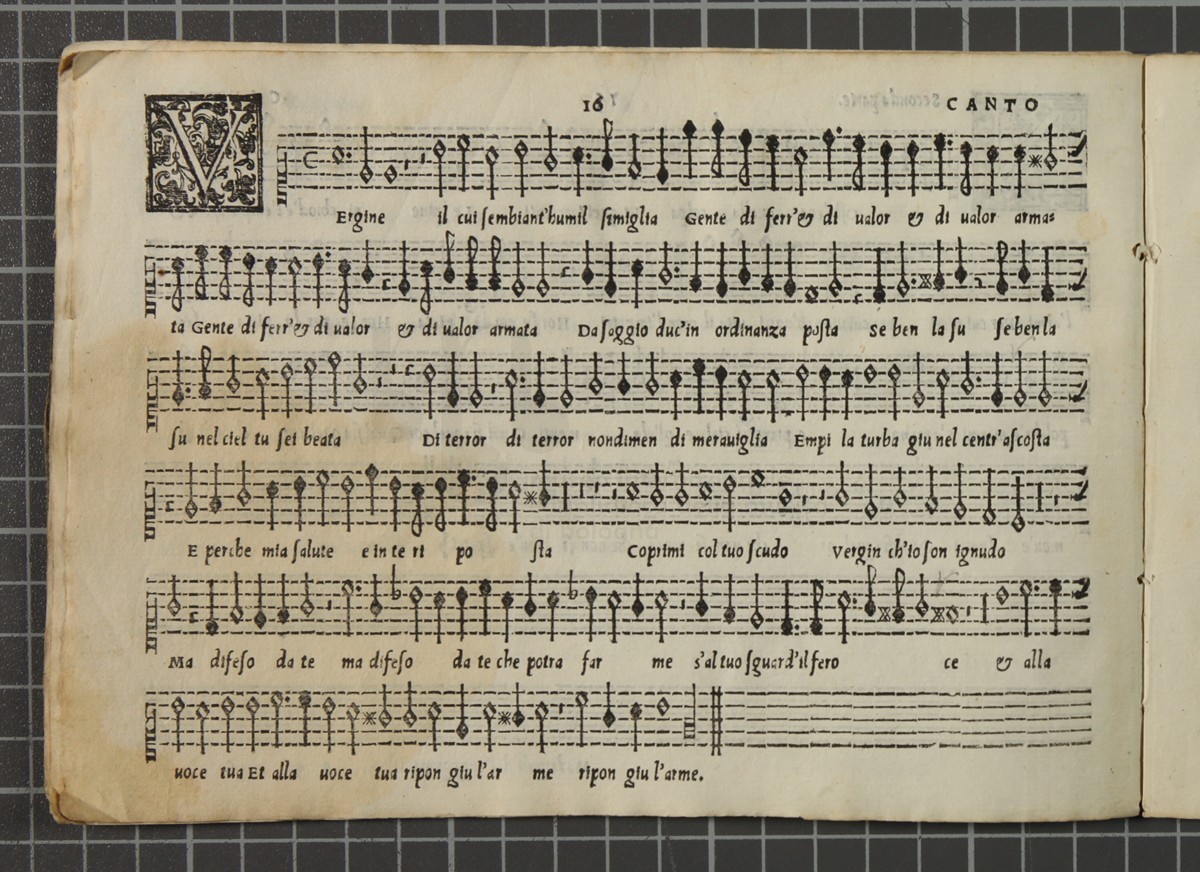 16 CANTO
VErgine il cui sembiant'humil simiglia Gente di ferr'& di ualor & di ualor arma=
ta Gente di ferr'& di ualor & di ualor armata Da saggio duc'in ordinanza posta se ben la su se ben la
su nel ciel tu sei beata Di terror di terror nondimen di merauiglia Empi la turba giu nel centr'ascosta
E perche mia salute e in te ri po sta Coprimi col tuo scudo Vergin ch'io son ignudo
Ma difeso da te ma difeso da te che potra far me s'al tuo sguard'il fero ce & alla
uoce tua Et alla uoce tua ripon giu l'ar me ripon giu l'arme.